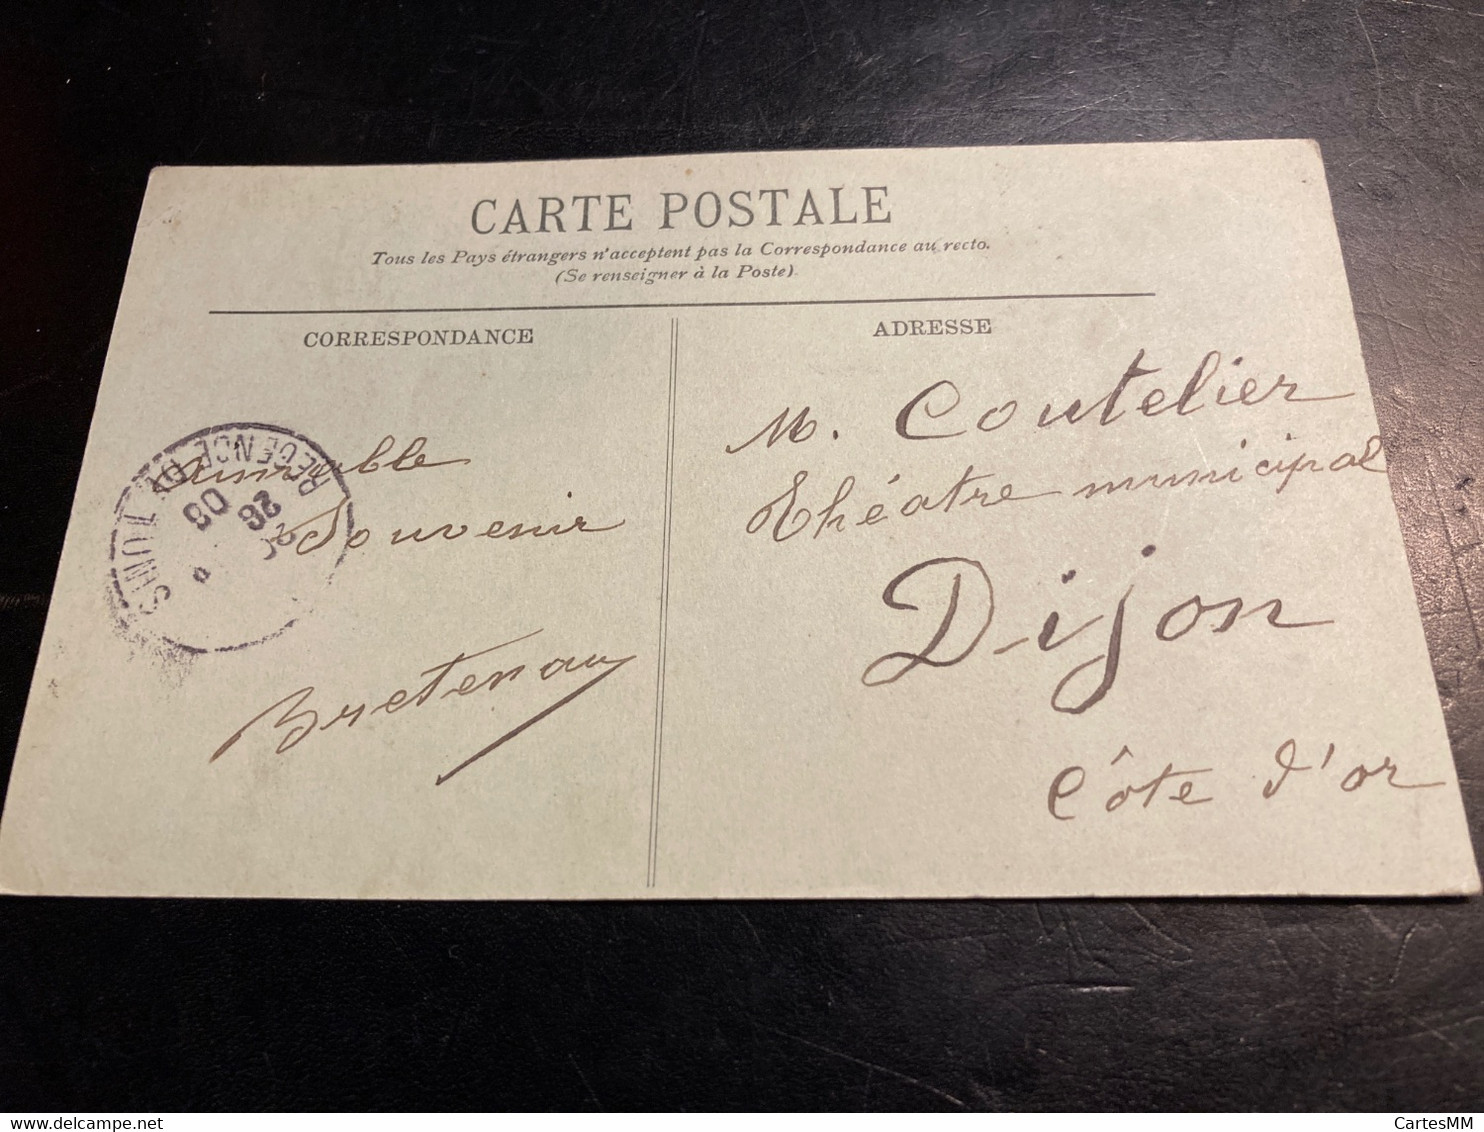 CARTE POSTALE
Tous les Pays étrangers n'acceptent pas la Correspondance au recto.
(Se renseigner à la Poste)
CORRESPONDANCE
Aimable
Souvenir
Bretenau
ADRESSE
M. Coutelier
Théatre municipal
Dijon
Côte d'or
REGENCE DE TUNIS
26
08
CartesMM